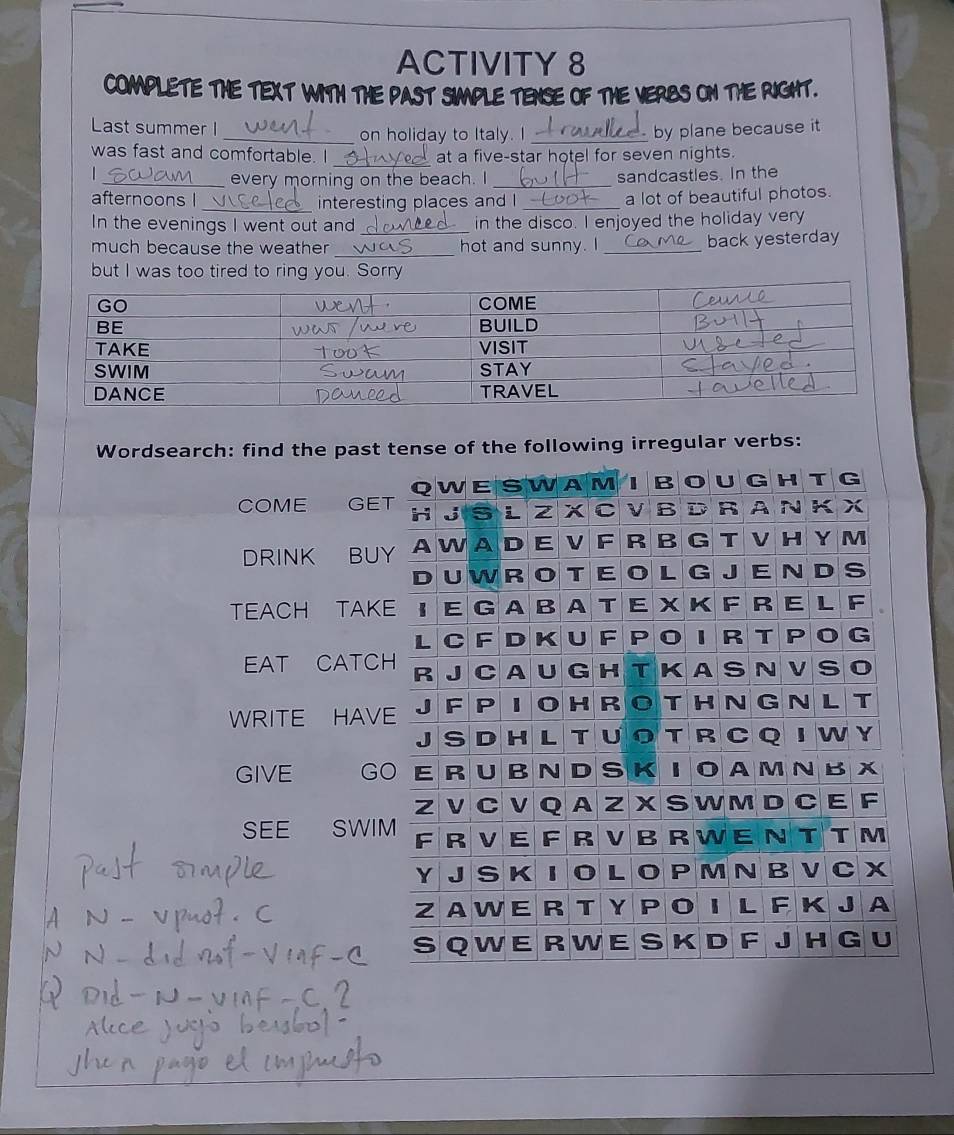 ACTIVITY 8
COMPLETE THE TEXT WITH THE PAST SIMPLE TENSE OF THE VERBS ON THE RIGHT.
Last summer I went on holiday to Italy. I travelled by plane because it
was fast and comfortable. I stayed at a five-star hotel for seven nights.
I swam every morning on the beach. I built sandcastles. In the
afternoons I viseted interesting places and I toot a lot of beautiful photos.
In the evenings I went out and danced in the disco. I enjoyed the holiday very
much because the weather was hot and sunny. I came back yesterday
but I was too tired to ring you. Sorry
GO went. COME came
BE was/were BUILD Built
TAKE took VISIT viseted
SWIM Swam STAY stayed.
DANCE Danced TRAVEL tavelled
Wordsearch: find the past tense of the following irregular verbs:
COME GET
DRINK BUY
TEACH TAKE
EAT CATCH
WRITE HAVE
GIVE GO
SEE SWIM
Q W E S W A M I B O U G H T G
H J S L Z X C V B D R A N K X
A W A D E V F R B G T V H Y M
D U W R O T E O L G J E N D S
I E G A B A T E X K F R E L F
L C F D K U F P O I R T P O G
R J C A U G H T K A S N V S O
J F P I O H R O T H N G N L T
J S D H L T U O T R C Q I W Y
E R U B N D S K I O A M N B X
Z V C V Q A Z X S W M D C E F
F R V E F R V B R W E N T T M
Y J S K I O L O P M N B V C X
Z A W E R T Y P O I L F K J A
S Q W E R W E S K D F J H G U
past simple
A N - v pnot. C
N N - did not - V inf - C
Q Did - N - vinf - C ?
Alice jugo beisbol -
pago el impuesto